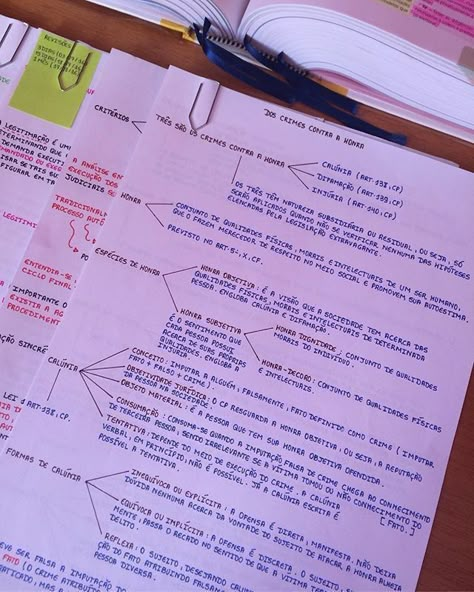 REVISÕES
DOS CRIMES CONTRA A HONRA
TRÊS SÃO OS CRIMES CONTRA A HONRA
CALÚNIA (ART. 138, CP)
DIFAMAÇÃO (ART. 139, CP)
INJÚRIA (ART. 140, CP)
OS TRÊS TÊM NATUREZA SUBSIDIÁRIA OU RESIDUAL, OU SEJA, SÓ
SERÃO APLICADOS QUANDO NÃO SE VERIFICAR NENHUMA DAS HIPÓTESES
ELENCADAS PELA LEGISLAÇÃO EXTRAVAGANTE.
HONRA
CONJUNTO DE QUALIDADES FÍSICAS, MORAIS E INTELECTUAIS DE UM SER HUMANO,
QUE O FAZEM MERECEDOR DE RESPEITO NO MEIO SOCIAL E PROMOVEM SUA AUTOESTIMA.
PREVISTO NO ART. 5º, X, CF.
ESPÉCIES DE HONRA
HONRA OBJETIVA: É A VISÃO QUE A SOCIEDADE TEM ACERCA DAS
QUALIDADES FÍSICAS, MORAIS E INTELECTUAIS DE DETERMINADA
PESSOA. ENGLOBA CALÚNIA E DIFAMAÇÃO.
HONRA SUBJETIVA
É O SENTIMENTO QUE
CADA PESSOA POSSUI
ACERCA DE SUAS PRÓPRIAS
QUALIDADES. ENGLOBA A
INJÚRIA
HONRA DIGNIDADE: CONJUNTO DE QUALIDADES
MORAIS DO INDIVÍDUO.
HONRA-DECORO: CONJUNTO DE QUALIDADES FÍSICAS
E INTELECTUAIS.
CALÚNIA
ART. 138, CP.
CONCEITO: IMPUTAR A ALGUÉM, FALSAMENTE, FATO DEFINIDO COMO CRIME (IMPUTAR
FATO + FALSO + CRIME).
OBJETIVIDADE JURÍDICA: O CP RESGUARDA A HONRA OBJETIVA, OU SEJA, A REPUTAÇÃO
DA PESSOA NA SOCIEDADE.
OBJETO MATERIAL: É A PESSOA QUE TEM SUA HONRA OBJETIVA OFENDIDA.
CONSUMAÇÃO: CONSUMA-SE QUANDO A IMPUTAÇÃO FALSA DE CRIME CHEGA AO CONHECIMENTO
DE TERCEIRA PESSOA, SENDO IRRELEVANTE SE A VÍTIMA TOMOU OU NÃO CONHECIMENTO DO
[FATO.]
TENTATIVA: DEPENDE DO MEIO DE EXECUÇÃO DO CRIME. A CALÚNIA
VERBAL, EM PRINCÍPIO, NÃO É POSSÍVEL. JÁ A CALÚNIA ESCRITA É
POSSÍVEL A TENTATIVA.
FORMAS DE CALÚNIA
INEQUÍVOCA OU EXPLÍCITA: A OFENSA É DIRETA, MANIFESTA. NÃO DEIXA
DÚVIDA NENHUMA ACERCA DA VONTADE DO SUJEITO DE ATACAR A HONRA ALHEIA
EQUÍVOCA OU IMPLÍCITA: A OFENSA É DISCRETA. O SUJEITO,
MENTE, PASSA O RECADO NO SENTIDO DE QUE A VÍTIMA
DELITO.
REFLEXA: O SUJEITO, DESEJANDO
DO FATO ATRIBUINDO FALSAMENTE
PESSOA DIVERSA.
CRITÉRIOS
A ANÁLISE
EXECUÇÃO DOS
JUDICIAIS SE
TRADICIONAL
PROCESSO
ENTENDIA-SE
CICLO FINAL
IMPORTANTE O
EXISTIA A
PROCEDIMENTO
A LEGITIMAÇÃO É UM
DETERMINANDO QUE
DEMANDA
LEGITIMI
LEI
SER FALSA A IMPUTAÇÃO DO
FATO (O CRIME
PRATICADO, MAS A